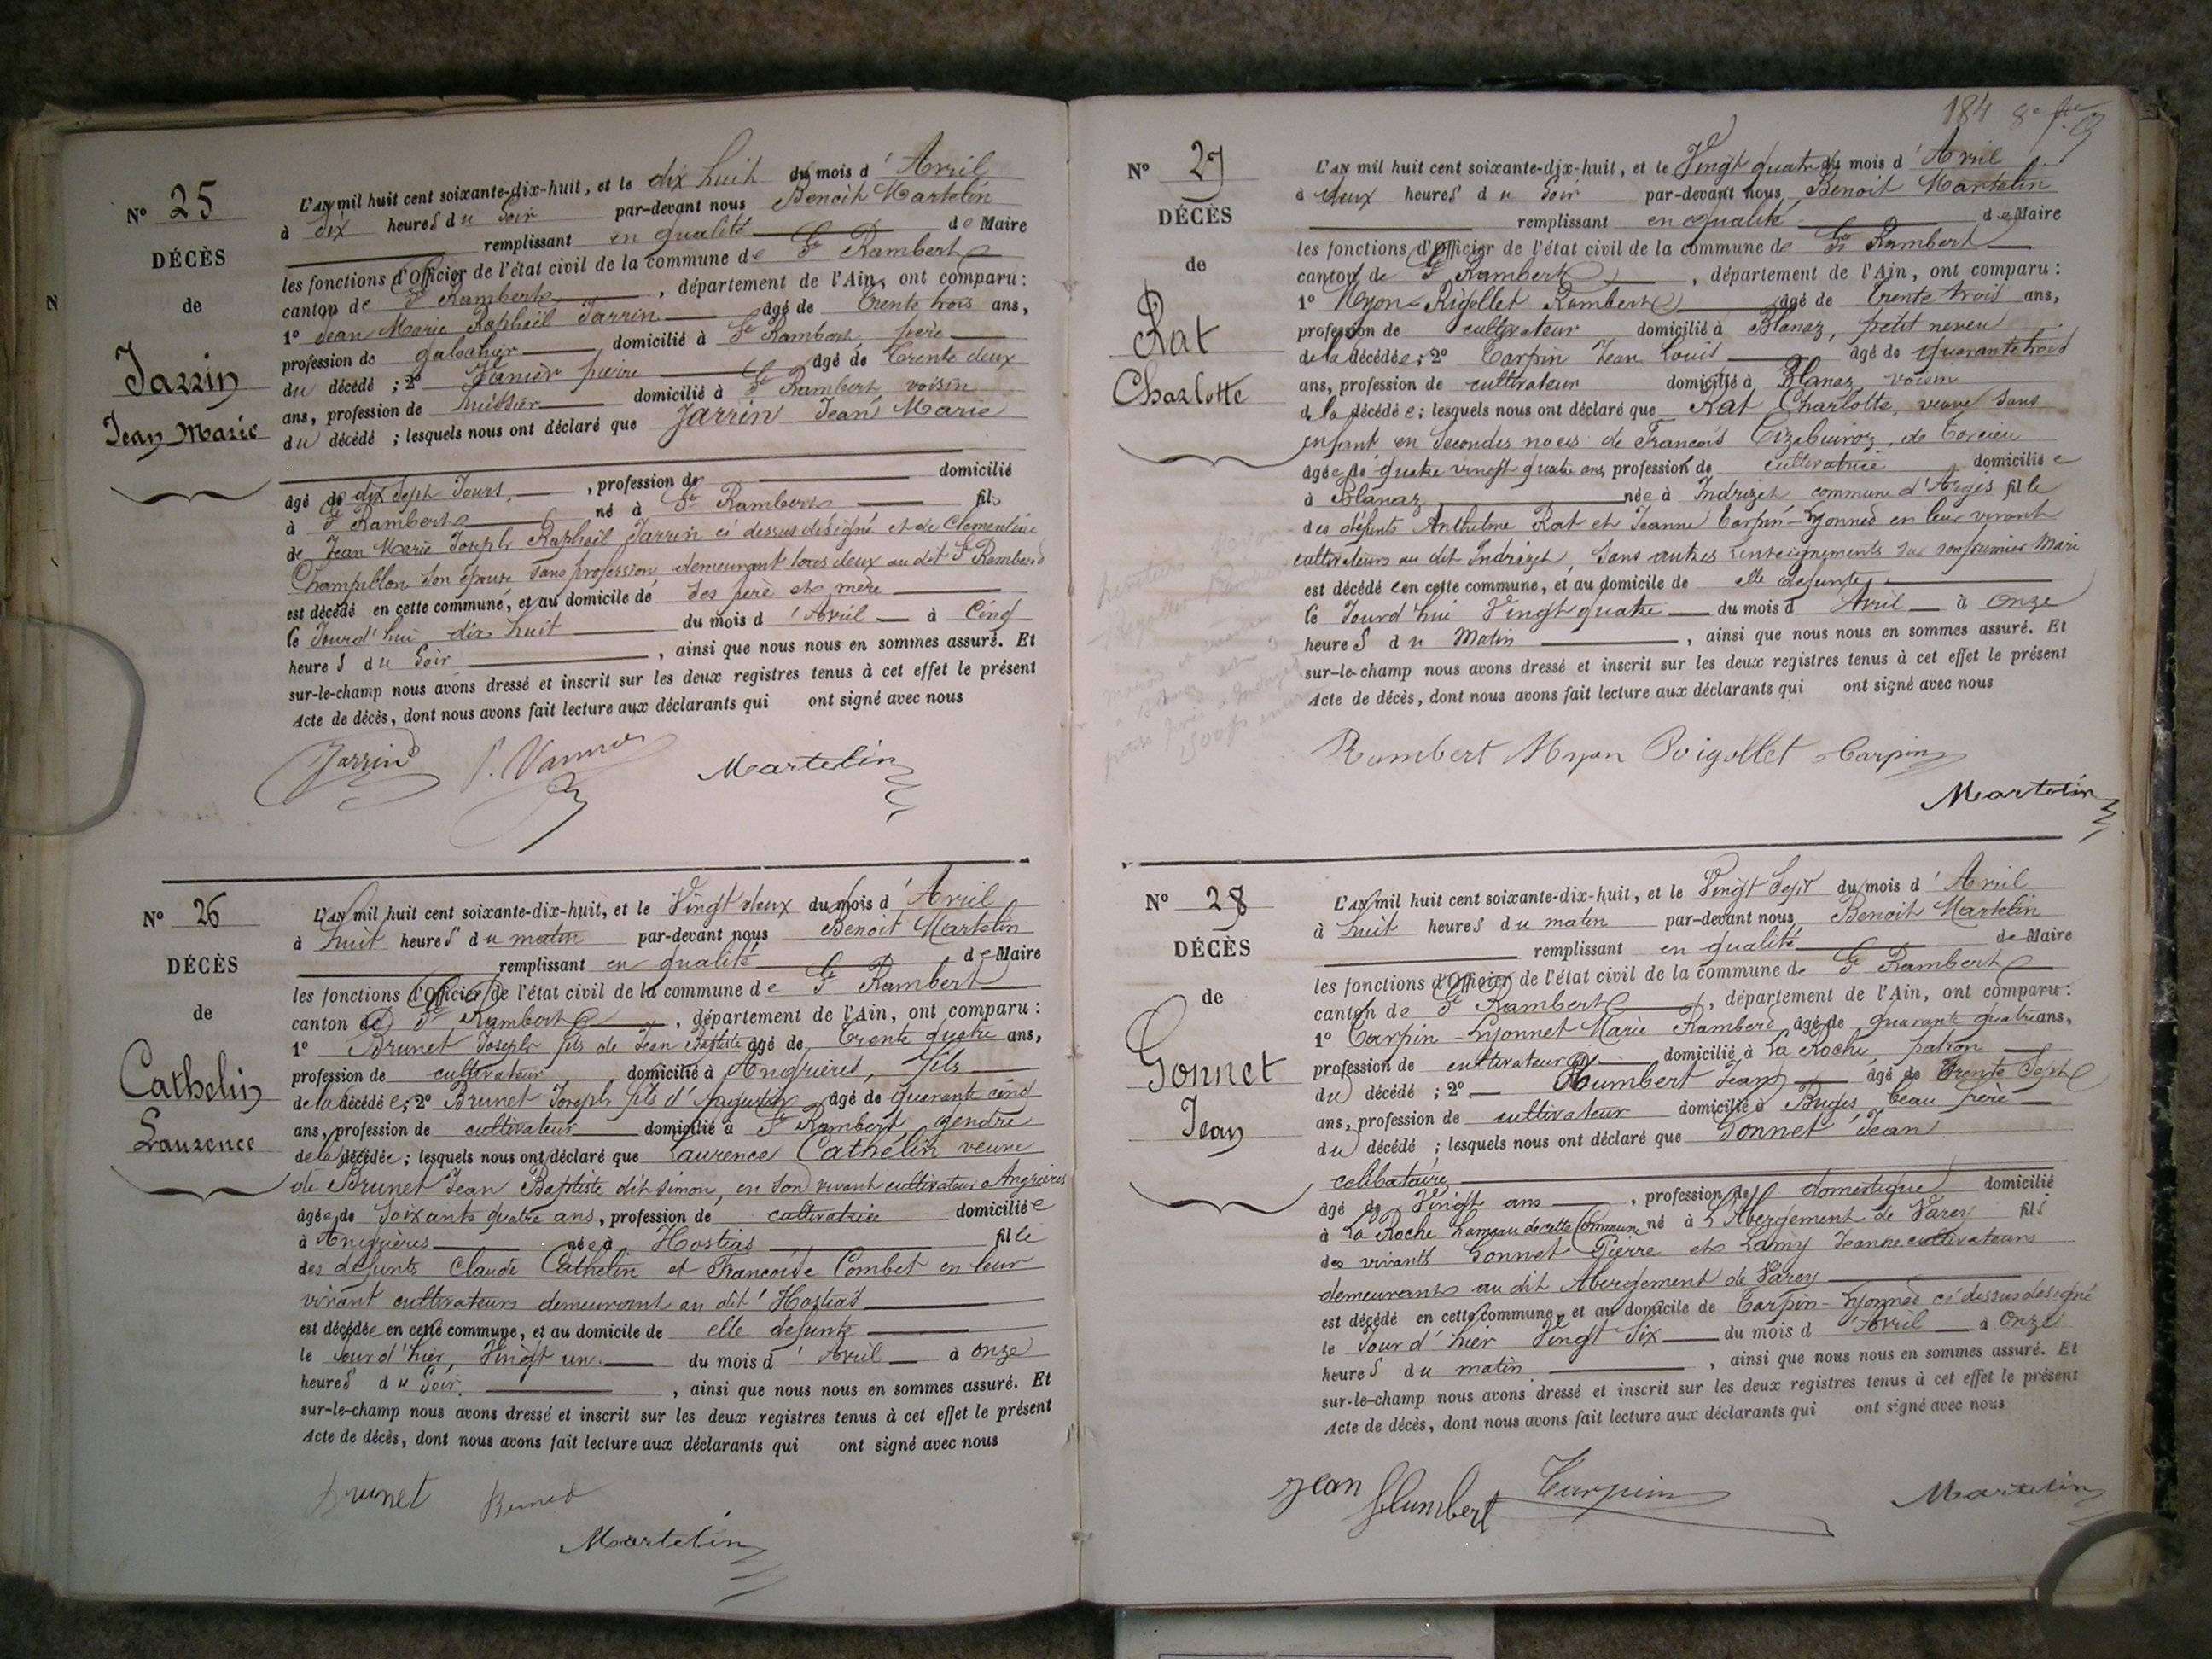 N
Nº 25
DÉCÈS
de
Jarrin
Jean Marie
L'AN mil huit cent soixante-dix-huit, et le dix huit du mois d'Avril
à dix heures du soir par-devant nous Benoit Martelin
remplissant en qualité de Maire
les fonctions d'Officier de l'état civil de la commune de St Rambert
canton de St Rambert, département de l'Ain, ont comparu:
1º Jean Marie Raphaël Jarrin âgé de trente trois ans,
profession de galochier domicilié à St Rambert, père
du décédé ; 2º Vanier pierre âgé de trente deux
ans, profession de huissier domicilié à St Rambert, voisin
du décédé ; lesquels nous ont déclaré que Jarrin Jean Marie
âgé de dix sept Jours, profession de domicilié
à St Rambert né à St Rambert fils
de Jean Marie Joseph Raphaël Jarrin ci dessus désigné et de Clémentine
Champillon son épouse sans profession demeurant tous deux au dit St Rambert
est décédé en cette commune, et au domicile de ses père et mère
le Jourd'hui dix huit du mois d'Avril à Cinq
heures du soir, ainsi que nous nous en sommes assuré. Et
sur-le-champ nous avons dressé et inscrit sur les deux registres tenus à cet effet le présent
Acte de décès, dont nous avons fait lecture aux déclarants qui ont signé avec nous
Jarrin P. Vanier Martelin
Nº 26
DÉCÈS
de
Cathelin
Laurence
L'AN mil huit cent soixante-dix-huit, et le Vingt deux du mois d'Avril
à huit heures du matin par-devant nous Benoit Martelin
remplissant en qualité de Maire
les fonctions d'Officier de l'état civil de la commune de St Rambert
canton de St Rambert, département de l'Ain, ont comparu:
1º Brunet Joseph fils de Jean Baptiste âgé de trente quatre ans,
profession de cultivateur domicilié à Angrières, fils
de la décédée; 2º Brunet Joseph fils d'Augustin âgé de quarante cinq
ans, profession de cultivateur domicilié à St Rambert, gendre
de la décédée; lesquels nous ont déclaré que Laurence Cathelin veuve
de Brunet Jean Baptiste dit Simon, en son vivant cultivateur à Angrières
âgée de soixante quatre ans, profession de cultivatrice domiciliée
à Angrières née à Hostias fille
des défunts Claude Cathelin et Françoise Combet en leur
vivant cultivateurs demeurant au dit Hostias
est décédée en cette commune, et au domicile de elle défunte
le Jour d'hier, Vingt un du mois d'Avril à onze
heures du soir, ainsi que nous nous en sommes assuré. Et
sur-le-champ nous avons dressé et inscrit sur les deux registres tenus à cet effet le présent
Acte de décès, dont nous avons fait lecture aux déclarants qui ont signé avec nous
Brunet Brunet
Martelin
184
Nº 27
DÉCÈS
de
Rat
Charlotte
L'AN mil huit cent soixante-dix-huit, et le Vingt quatre du mois d'Avril
à deux heures du soir par-devant nous Benoit Martelin
remplissant en qualité de Maire
les fonctions d'Officier de l'état civil de la commune de St Rambert
canton de St Rambert, département de l'Ain, ont comparu:
1º Myon-Rigollet Rambert âgé de trente trois ans,
profession de cultivateur domicilié à Blanaz, petit neveu
de la décédée; 2º Carpin Jean Louis âgé de quarante trois
ans, profession de cultivateur domicilié à Blanaz, voisin
de la décédée; lesquels nous ont déclaré que Rat Charlotte, veuve sans
enfant en secondes noces de François de Torcieu
âgée de quatre vingt quatre ans, profession de cultivatrice domiciliée
à Blanaz née à Indrizet commune d'Argis fille
des défunts Anthelme Rat et Jeanne Carpin-Lyonned en leur vivant
cultivateurs au dit Indrizet, sans autres renseignements sur son premier Mari
est décédée en cette commune, et au domicile de elle défunte
le Jourd'hui Vingt quatre du mois d'Avril à Onze
heures du Matin, ainsi que nous nous en sommes assuré. Et
sur-le-champ nous avons dressé et inscrit sur les deux registres tenus à cet effet le présent
Acte de décès, dont nous avons fait lecture aux déclarants qui ont signé avec nous
Rambert Myon Roigollet Carpin
Martelin
Nº 28
DÉCÈS
de
Gonnet
Jean
L'AN mil huit cent soixante-dix-huit, et le Vingt Sept du mois d'Avril
à huit heures du matin par-devant nous Benoit Martelin
remplissant en qualité de Maire
les fonctions d'Officier de l'état civil de la commune de St Rambert
canton de St Rambert, département de l'Ain, ont comparu:
1º Carpin-Lyonnet Marie Rambert âgé de quarante quatre ans,
profession de cultivateur domicilié à La Roche, patron
du décédé ; 2º Humbert Jean âgé de Trente Sept
ans, profession de cultivateur domicilié à Buges, beau frère
du décédé ; lesquels nous ont déclaré que Gonnet Jean
celibataire
âgé de Vingt ans, profession de domestique domicilié
à La Roche hameau de cette Commune né à L'Abergement de Varey fils
des vivants Gonnet Pierre et Lamy Jeanne cultivateurs
demeurants au dit Abergement de Varey
est décédé en cette commune, et au domicile de Carpin-Lyonned ci dessus designé
le Jour d'hier Vingt Six du mois d'Avril à Onze
heures du matin, ainsi que nous nous en sommes assuré. Et
sur-le-champ nous avons dressé et inscrit sur les deux registres tenus à cet effet le présent
Acte de décès, dont nous avons fait lecture aux déclarants qui ont signé avec nous
Jean Humbert Carpin Martelin